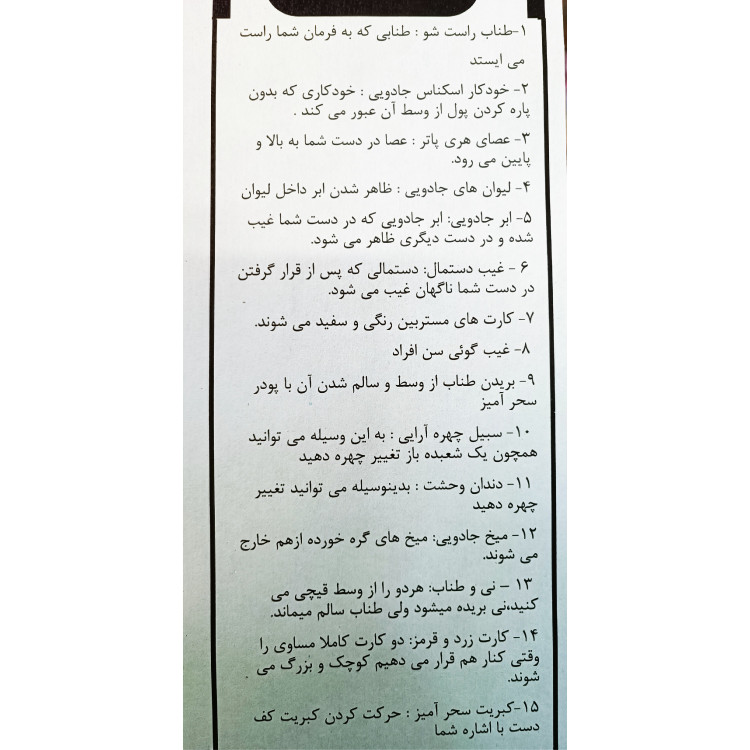 ۱-طناب راست شو : طنابی که به فرمان شما راست
می ایستد
۲- خودکار اسکناس جادویی : خودکاری که بدون
پاره کردن پول از وسط آن عبور می کند .
۳- عصای هری پاتر : عصا در دست شما به بالا و
پایین می رود.
۴- لیوان های جادویی : ظاهر شدن ابر داخل لیوان
۵- ابر جادویی: ابر جادویی که در دست شما غیب
شده و در دست دیگری ظاهر می شود.
۶ - غیب دستمال: دستمالی که پس از قرار گرفتن
در دست شما ناگهان غیب می شود.
۷- کارت های مستربین رنگی و سفید می شوند.
۸- غیب گوئی سن افراد
۹- بریدن طناب از وسط و سالم شدن آن با پودر
سحر آمیز
۱۰- سبیل چهره آرایی : به این وسیله می توانید
همچون یک شعبده باز تغییر چهره دهید
۱۱- دندان وحشت : بدینوسیله می توانید تغییر
چهره دهید
۱۲- میخ جادویی: میخ های گره خورده ازهم خارج
می شوند.
۱۳ – نی و طناب: هردو را از وسط قیچی می
کنید،نی بریده میشود ولی طناب سالم میماند.
۱۴- کارت زرد و قرمز: دو کارت کاملا مساوی را
وقتی کنار هم قرار می دهیم کوچک و بزرگ می
شوند.
۱۵-کبریت سحر آمیز : حرکت کردن کبریت کف
دست با اشاره شما